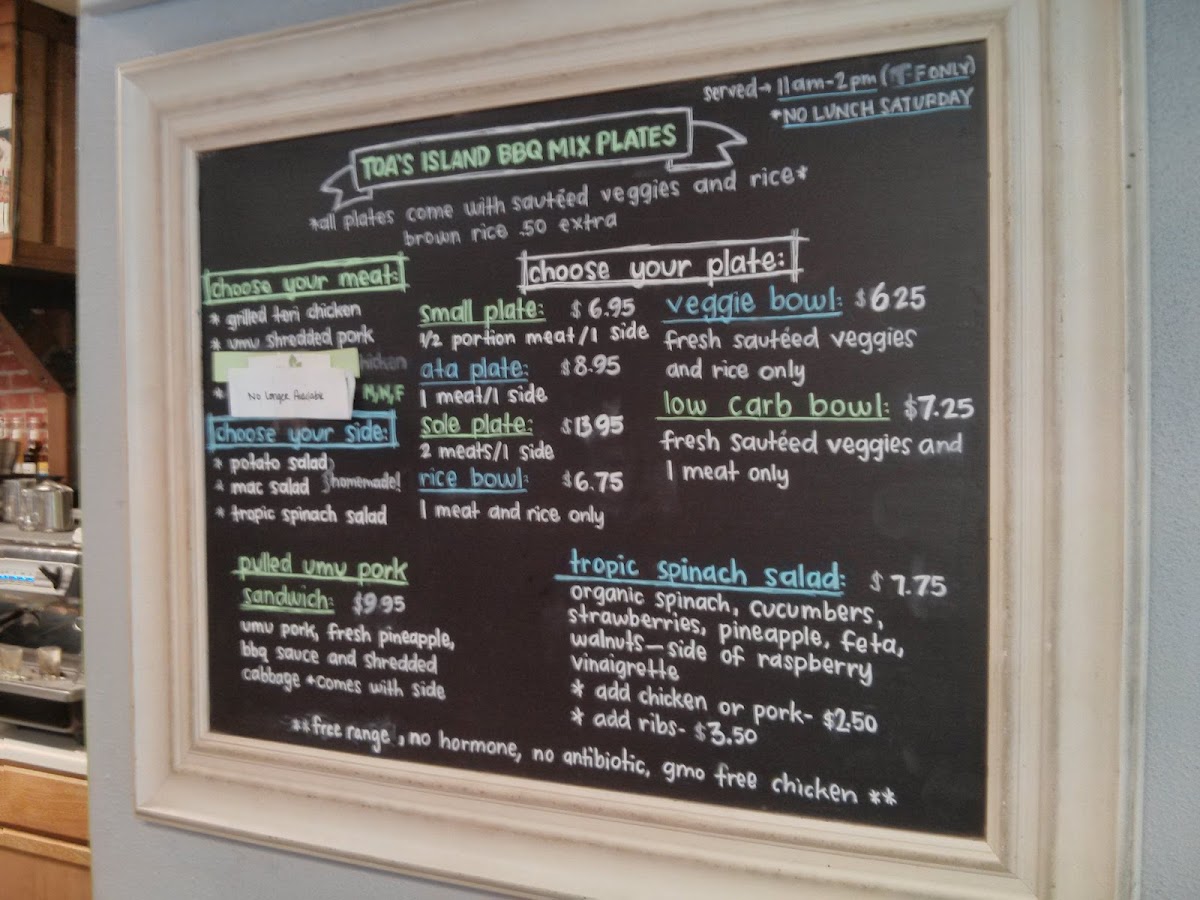 served→ 11am-2pm ( F ONLY)
*NO LUNCH SATURDAY
TOA'S ISLAND BBQ MIX PLATES
*all plates come with sautéed veggies and rice*
brown rice .50 extra
choose your meat:
* grilled teri chicken
* umu shredded pork
chicken
* M,W,F
No Longer Available
choose your side:
* potato salad
* mac salad } homemade!
* tropic spinach salad
choose your plate:
small plate: $6.95
1/2 portion meat/1 side
ata plate: $8.95
1 meat/1 side
sole plate: $13.95
2 meats/1 side
rice bowl: $6.75
1 meat and rice only
veggie bowl: $6.25
fresh sautéed veggies
and rice only
low carb bowl: $7.25
fresh sautéed veggies and
1 meat only
pulled umu pork
sandwich: $9.95
umu pork, fresh pineapple,
bbq sauce and shredded
cabbage *comes with side
tropic spinach salad: $7.75
organic spinach, cucumbers,
strawberries, pineapple, feta,
walnuts—side of raspberry
vinaigrette
* add chicken or pork- $2.50
* add ribs- $3.50
**free range, no hormone, no antibiotic, gmo free chicken **